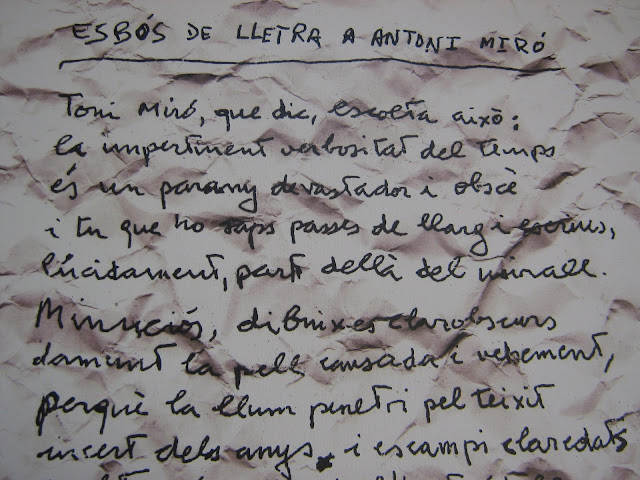 ESBÓS DE LLETRA A ANTONI MIRÓ
Toni Miró, que dic, escolta això:
la impertinent verbositat del temps
és un parany devastador i obscè
i tu que ho saps passes de llarg i escrius,
lúcidament, part dellà del mirall.
Minuciós, dibuixes clarobscurs
damunt la pell cansada i vehement,
perquè la llum penetri pel teixit
incert dels anys, i escampi claredats